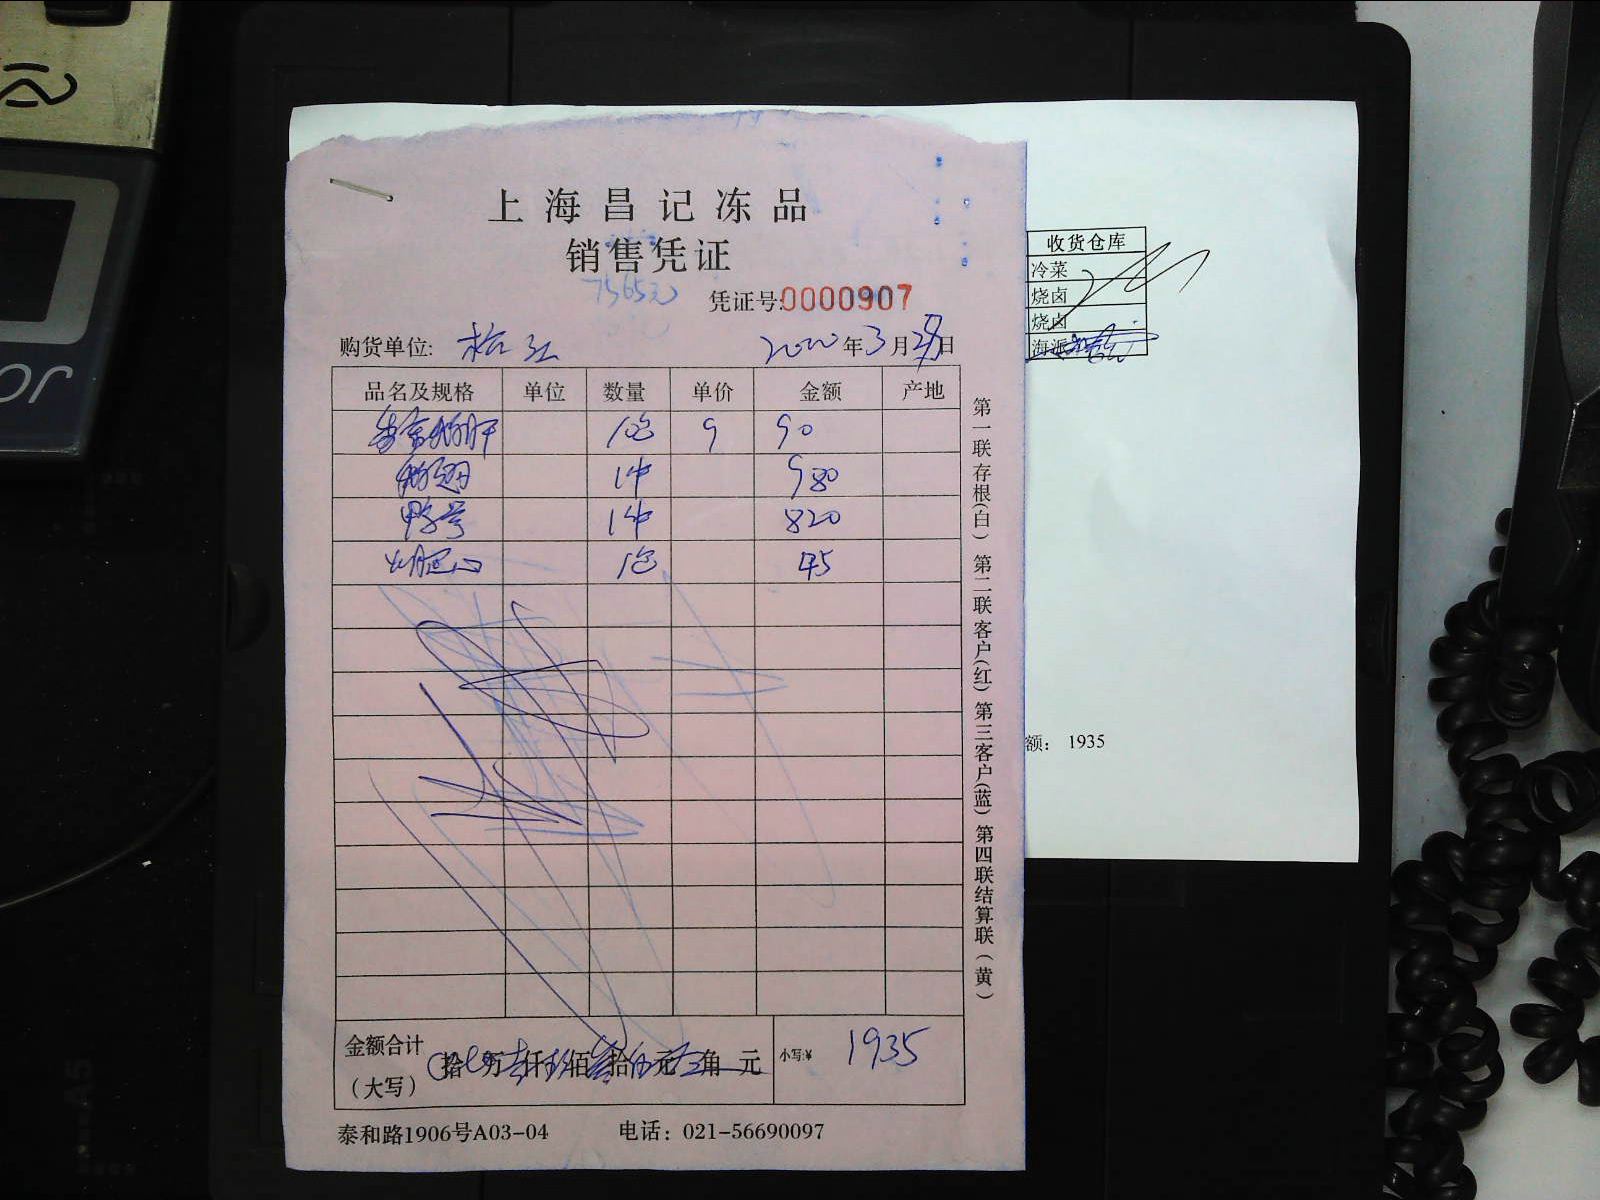 上海昌记冻品
销售凭证
凭证号:0000907
购货单位: 2020年3月29日
品名及规格 单位 数量 单价 金额 产地
10包 9 90
1件 980
1件 820
1包 45
金额合计
(大写)
拾 万 仟 佰 拾 元 角 元
小写:¥ 1935
泰和路1906号A03-04 电话：021-56690097
第一联存根(白) 第二联客户(红) 第三客户(蓝) 第四联结算联(黄)
收货仓库
冷菜
烧卤
烧卤
海派
额： 1935